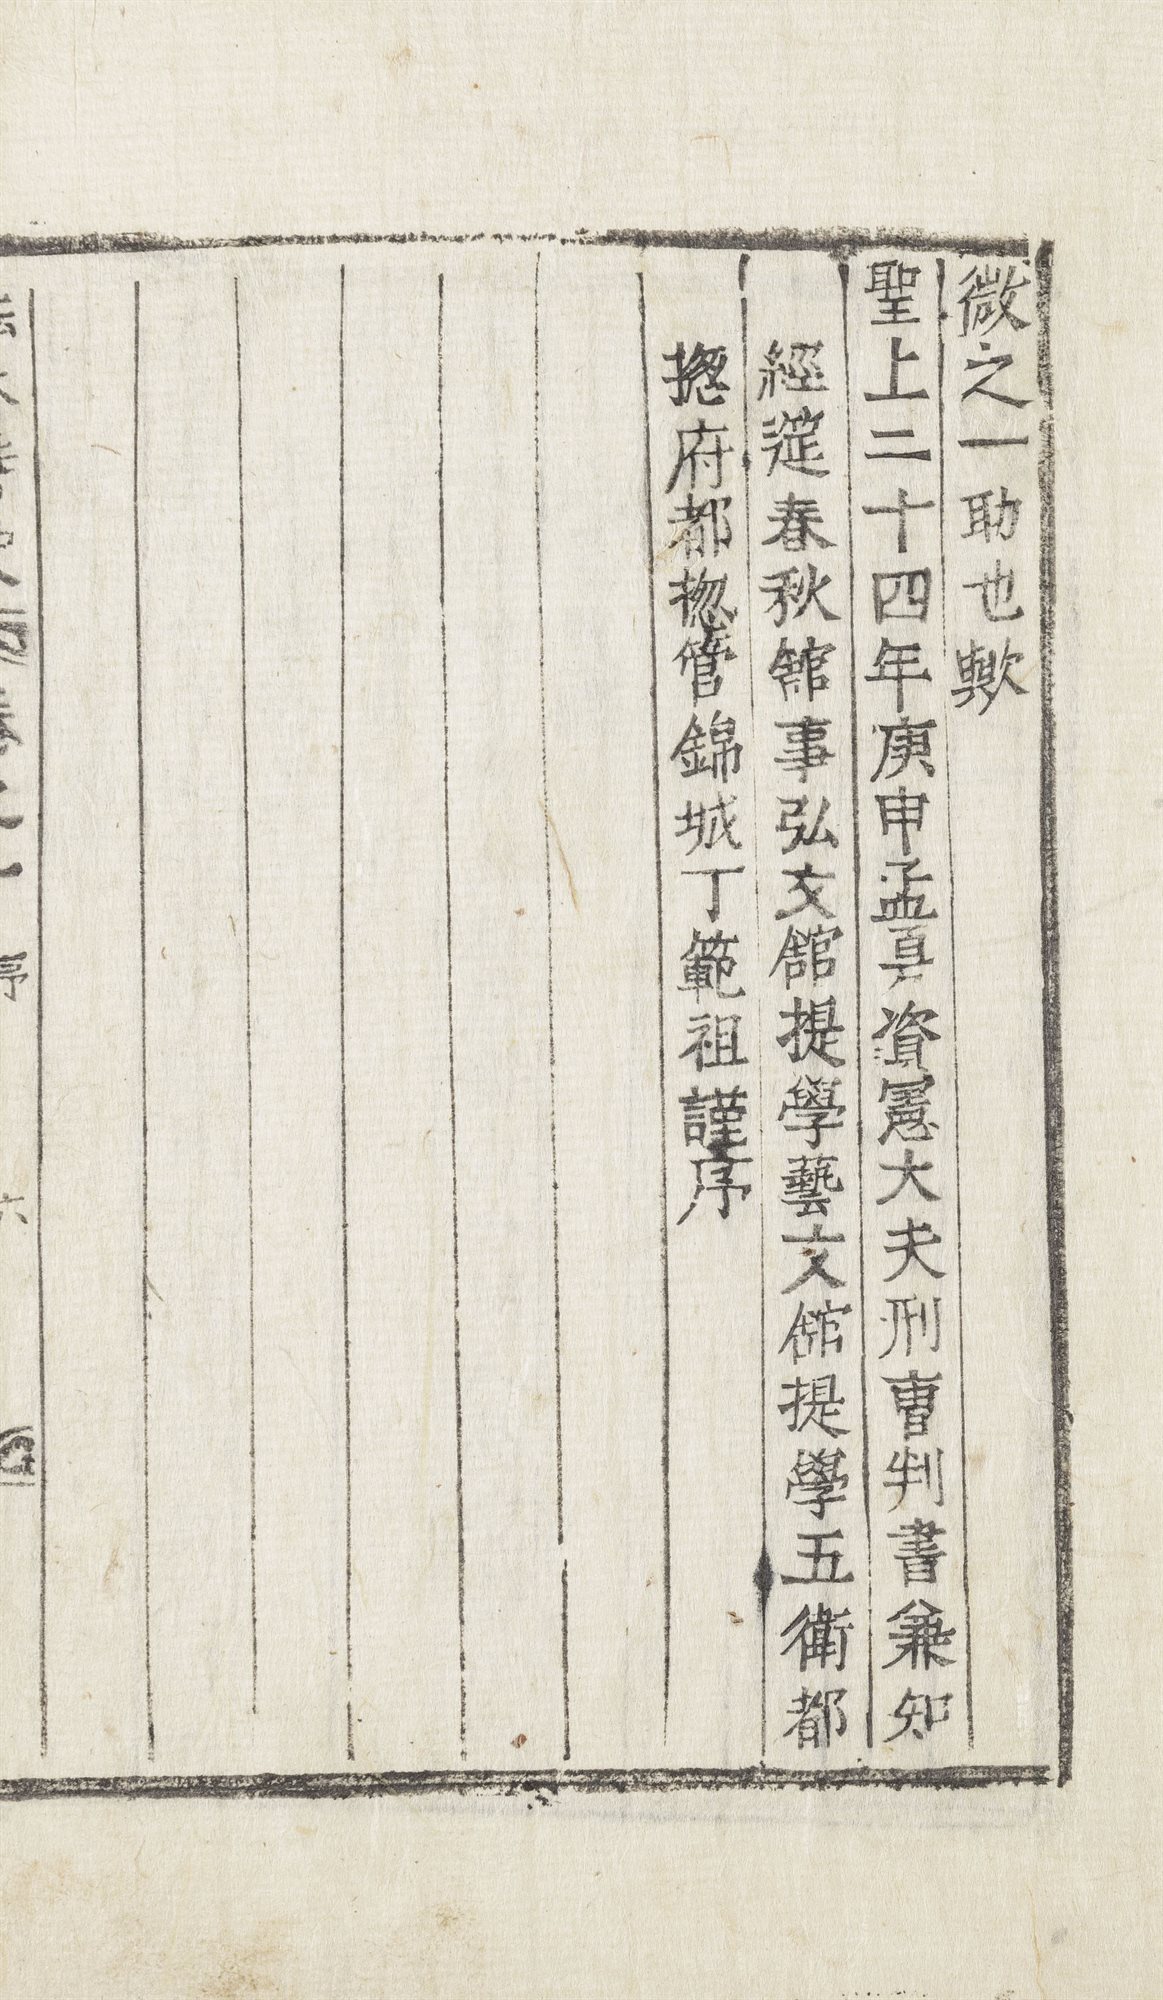 微之一助也歟
聖上二十四年庚申孟夏資憲大夫刑曹判書兼知
經筵春秋館事弘文館提學藝文館提學五衛都
摠府都摠管錦城丁範祖謹序
序 六